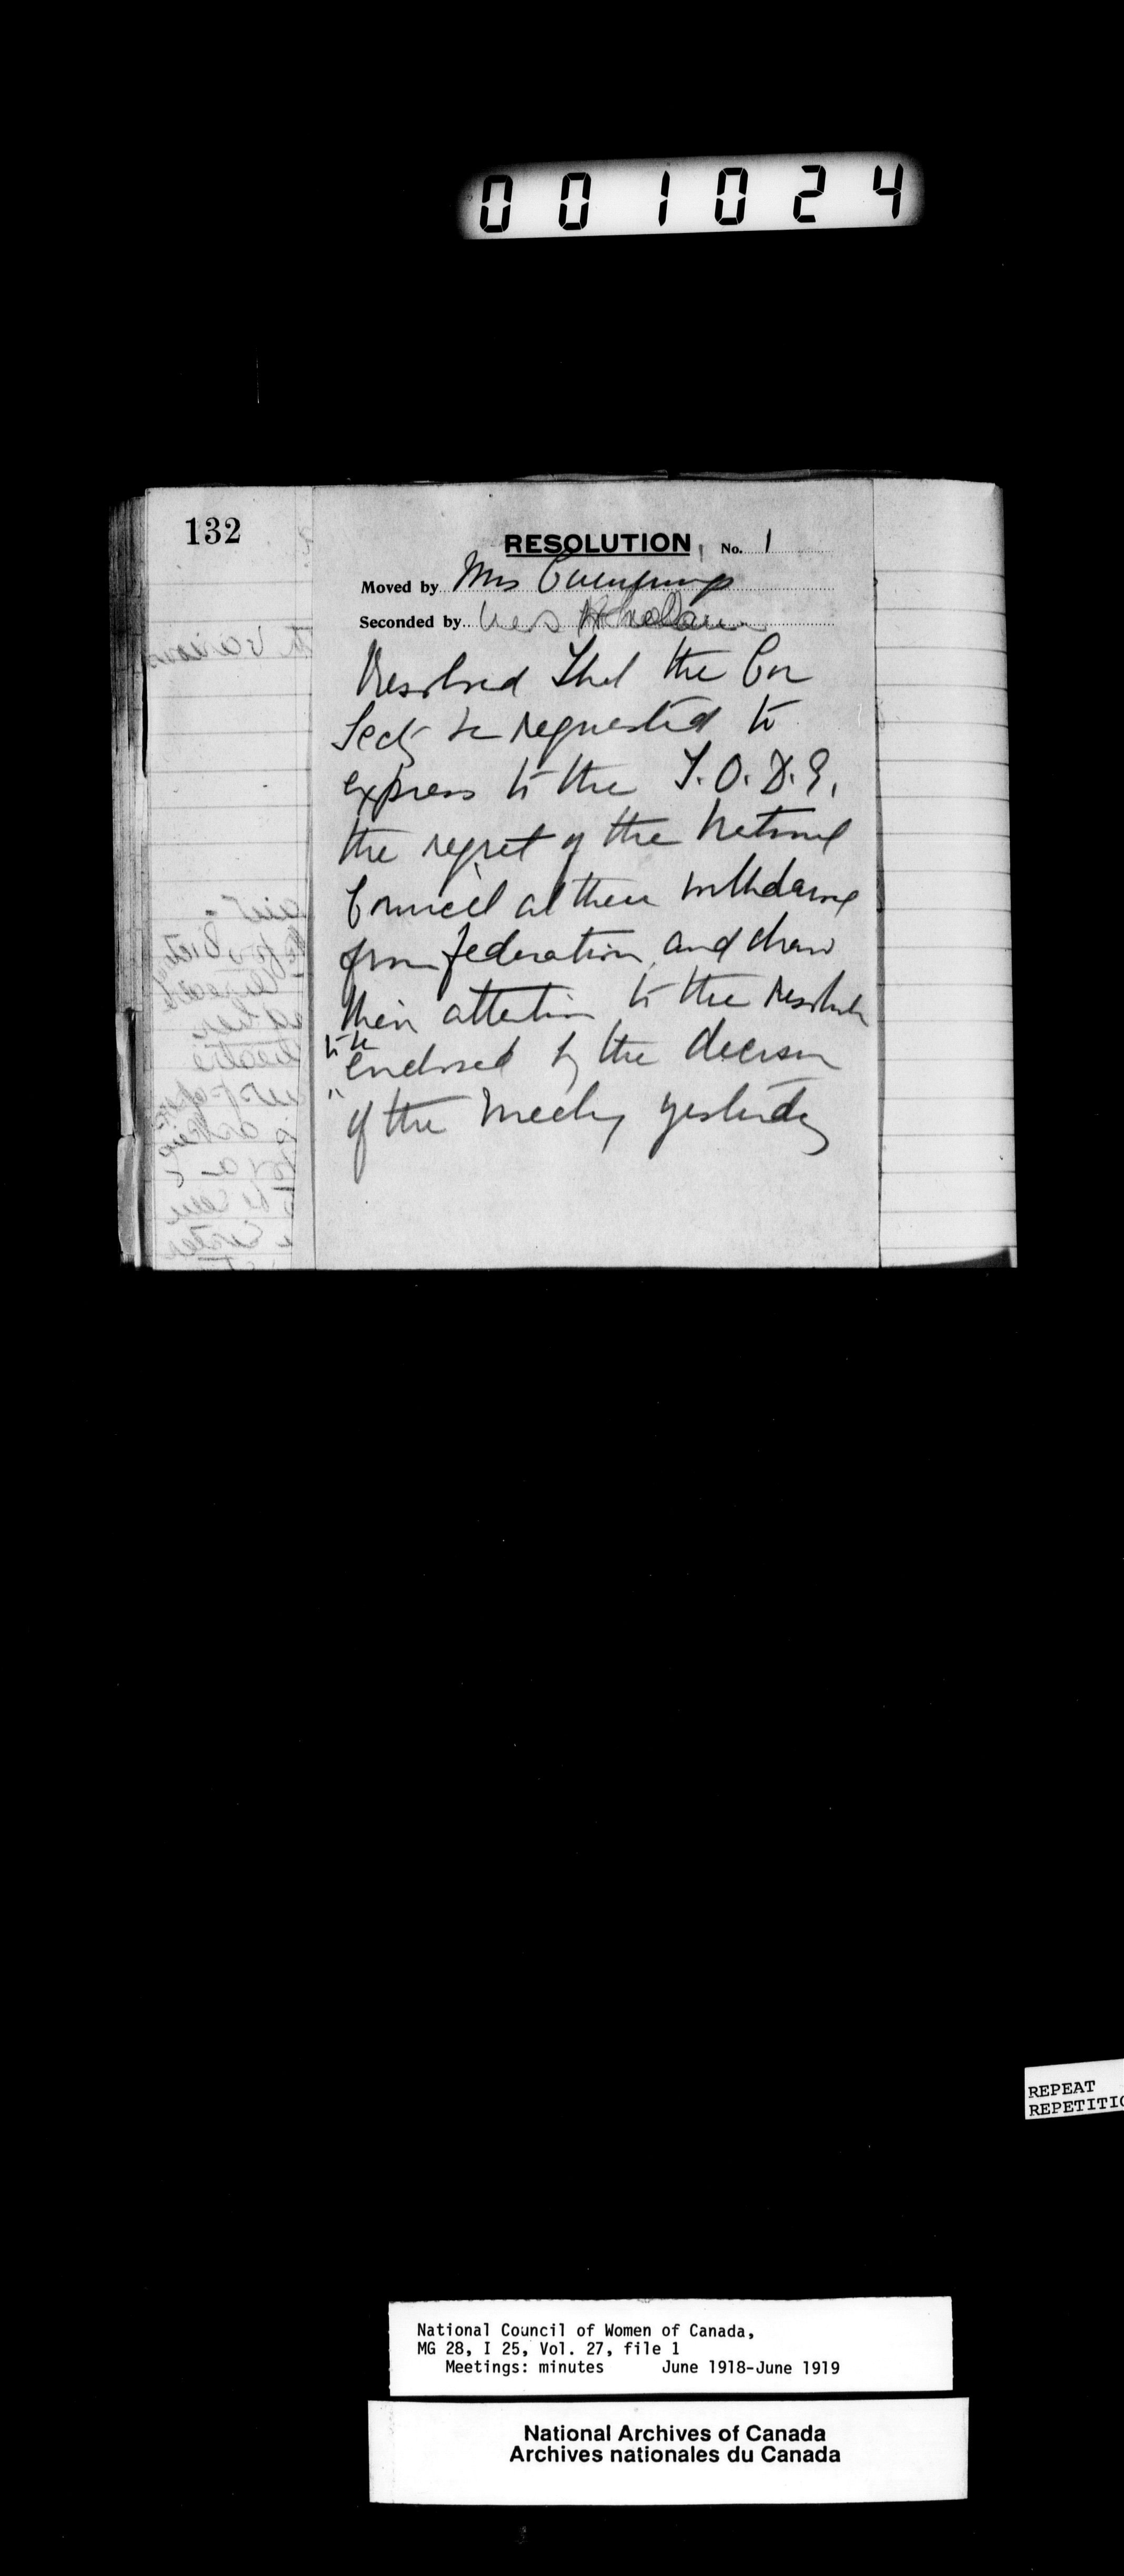 001024
132
RESOLUTION No. 1
Moved by Mrs Cummings
Seconded by Mrs
Resolved That the Cor
Secty be requested to
express to the I.O.D.E.
the regret of the National
Council at their withdrawal
from federation, and draw
their attention to the resolution
to be
endorsed by the decision
"
of the meeting yesterday
REPEAT
REPETITIO
National Council of Women of Canada,
MG 28, I 25, Vol. 27, file 1
Meetings: minutes June 1918-June 1919
National Archives of Canada
Archives nationales du Canada